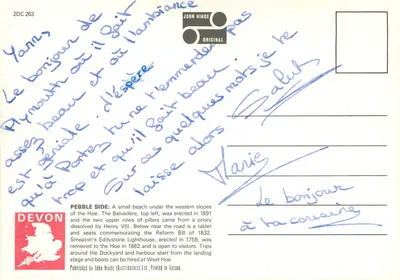 2DC 263
JOHN HINDE
ORIGINAL
Yann,
Le bonjour de
Plymouth où il fait
assez beau et où l'ambiance
est géniale. J'espère
qu'à Portez tu ne t'emmerdes pas
trop et qu'il fait beau.
Sur ces quelques mots je te
laisse alors
Salut
Marie
Le bonjour
à ta cousine
DEVON
PEBBLE SIDE: A small beach under the western slopes
of the Hoe. The Belvedere, top left, was erected in 1891
and the two upper rows of pillars came from a priory
dissolved by Henry VIII. Below near the road is a tablet
and seats commemorating the Reform Bill of 1832.
Smeaton's Eddystone Lighthouse, erected in 1759, was
removed to the Hoe in 1882 and is open to visitors. Trips
around the Dockyard and harbour start from the landing
stage and boats can be hired at West Hoe.
Published by John Hinde (Distributors) Ltd., Printed in Ireland.